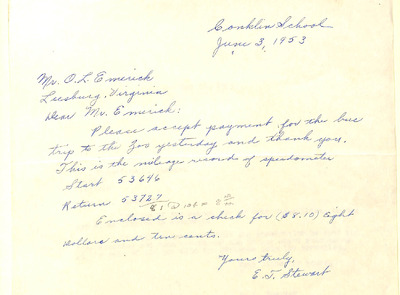 Conklin School
June 3, 1953
Mr. O.L. Emerick
Leesburg, Virginia
Dear Mr. Emerick:
Please accept payment for the bus
trip to the Zoo yesterday and thank you.
This is the mileage record of speedometer
Start 53646
Return 53727
81 @ 10¢ = 8 10
Enclosed is a check for ($8.10) Eight
Dollars and ten cents.
Yours truly,
E. T. Stewart